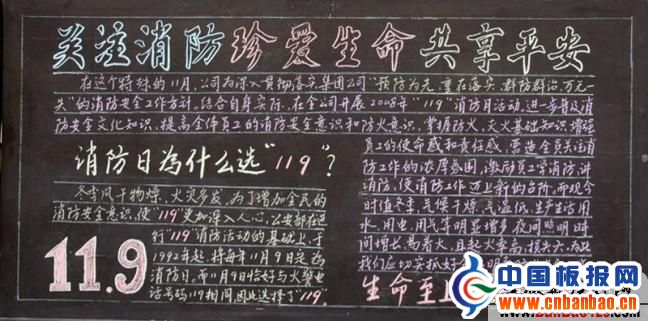 关注消防 珍爱生命 共享平安
在这个特殊的11月,公司为深入贯彻落实集团公司"预防为先,重在落实,群防群治,万无一
失"的消防安全工作方针,结合自身实际,在全公司开展2008年"119"消防月活动,进一步普及消
防安全文化知识,提高全体员工的消防安全意识和防火意识,掌握防火、灭火基础知识,增强
员工的使命感和责任感,营造全员关注消
防工作的浓厚氛围,激励员工学消防、讲
消防,使消防工作迈上新的台阶。而现今
时值冬季,气候干燥,气温低,生产生活用
水、用电、用气等明显增多,夜间照明时
间增长,易着火,且起火率高,损失大,为此
我们应切实抓好
生命至上
消防日為什么选"119"?
冬季风干物燥,火灾多发,为了增加全民的
消防安全意识,使"119"更加深入人心,公安部在进
行"119"消防活动的基础上,于
1992年起,将每年11月9日定为
消防日。而11月9日恰好与火警电
话号码119相同,因此选择了"119"
11.9
中国板报网
www.cnbanbao.cn